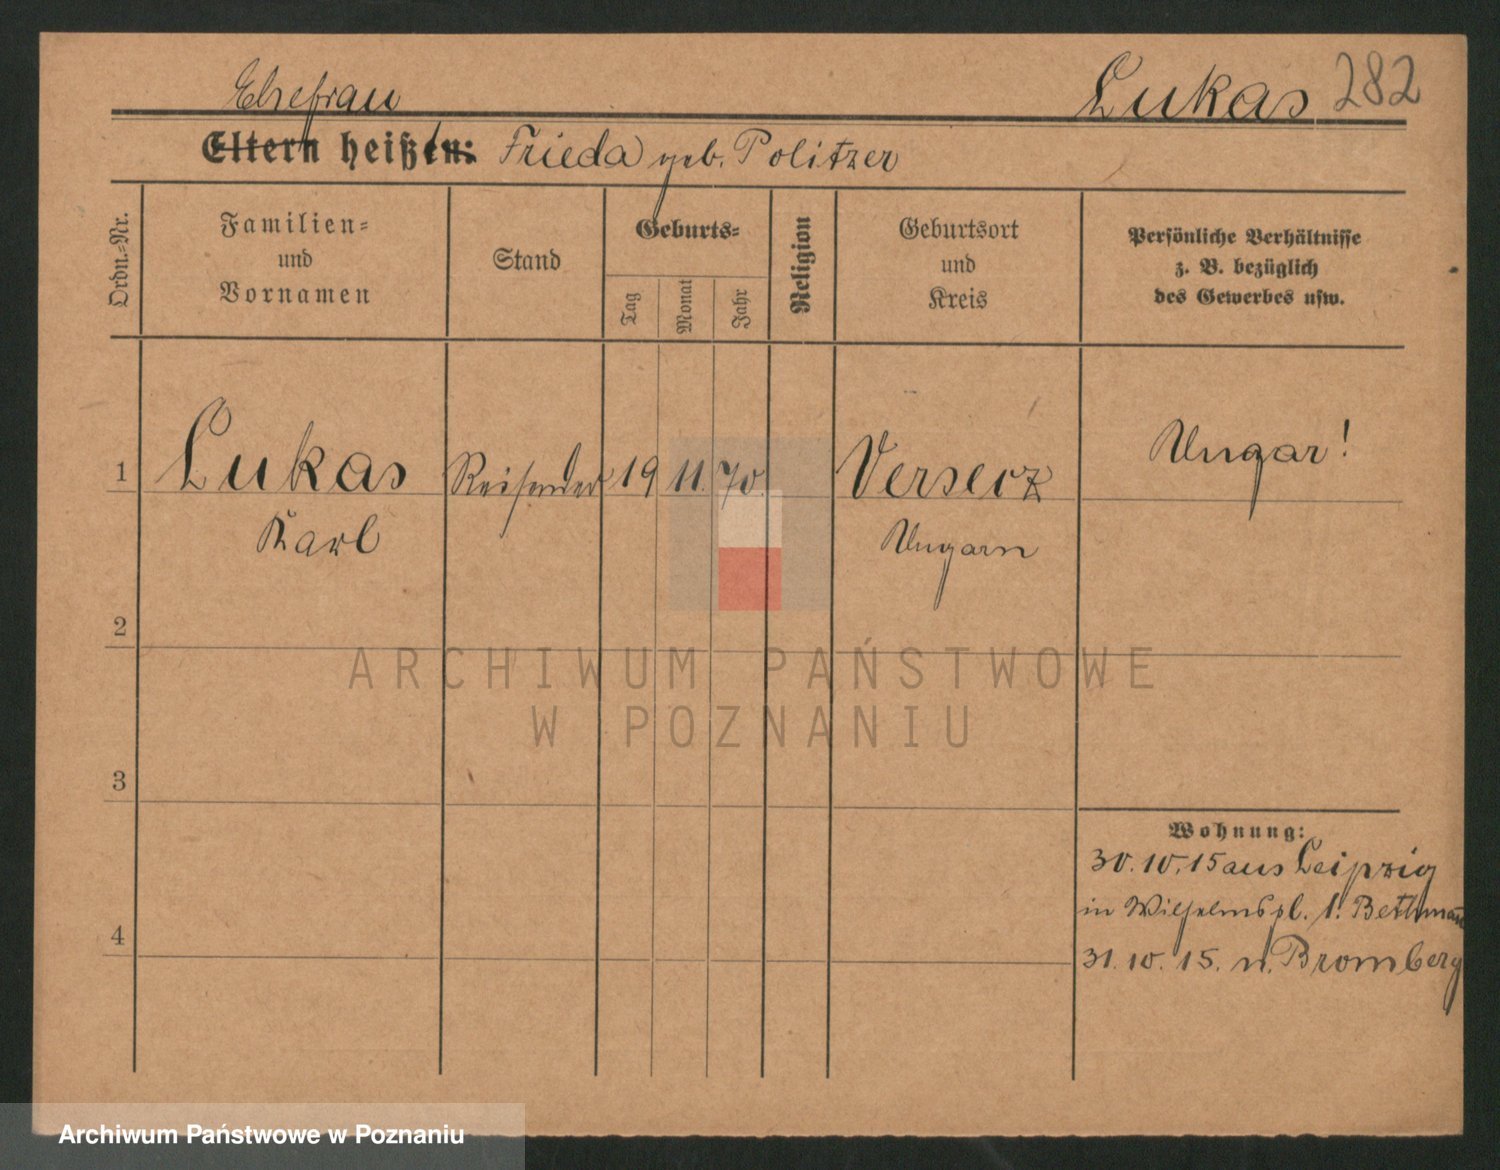 Lukas 282
Ehefrau
Eltern heißen: Frieda geb. Politzer
Ordn.-Nr.
Familien-
und
Vornamen
Stand
Geburts-
Tag
Monat
Jahr
Religion
Geburtsort
und
Kreis
Persönliche Verhältnisse
z. B. bezüglich
des Gewerbes usw.
1 Lukas Reisender 19 11. 70. Versecz Ungar!
Karl Ungarn
2
3
4
Wohnung:
30.10.15 aus Leipzig
in Wilhelmspl. 1. Bethmann
31.10.15. n. Bromberg
ARCHIWUM PAŃSTWOWE
W POZNANIU
Archiwum Państwowe w Poznaniu